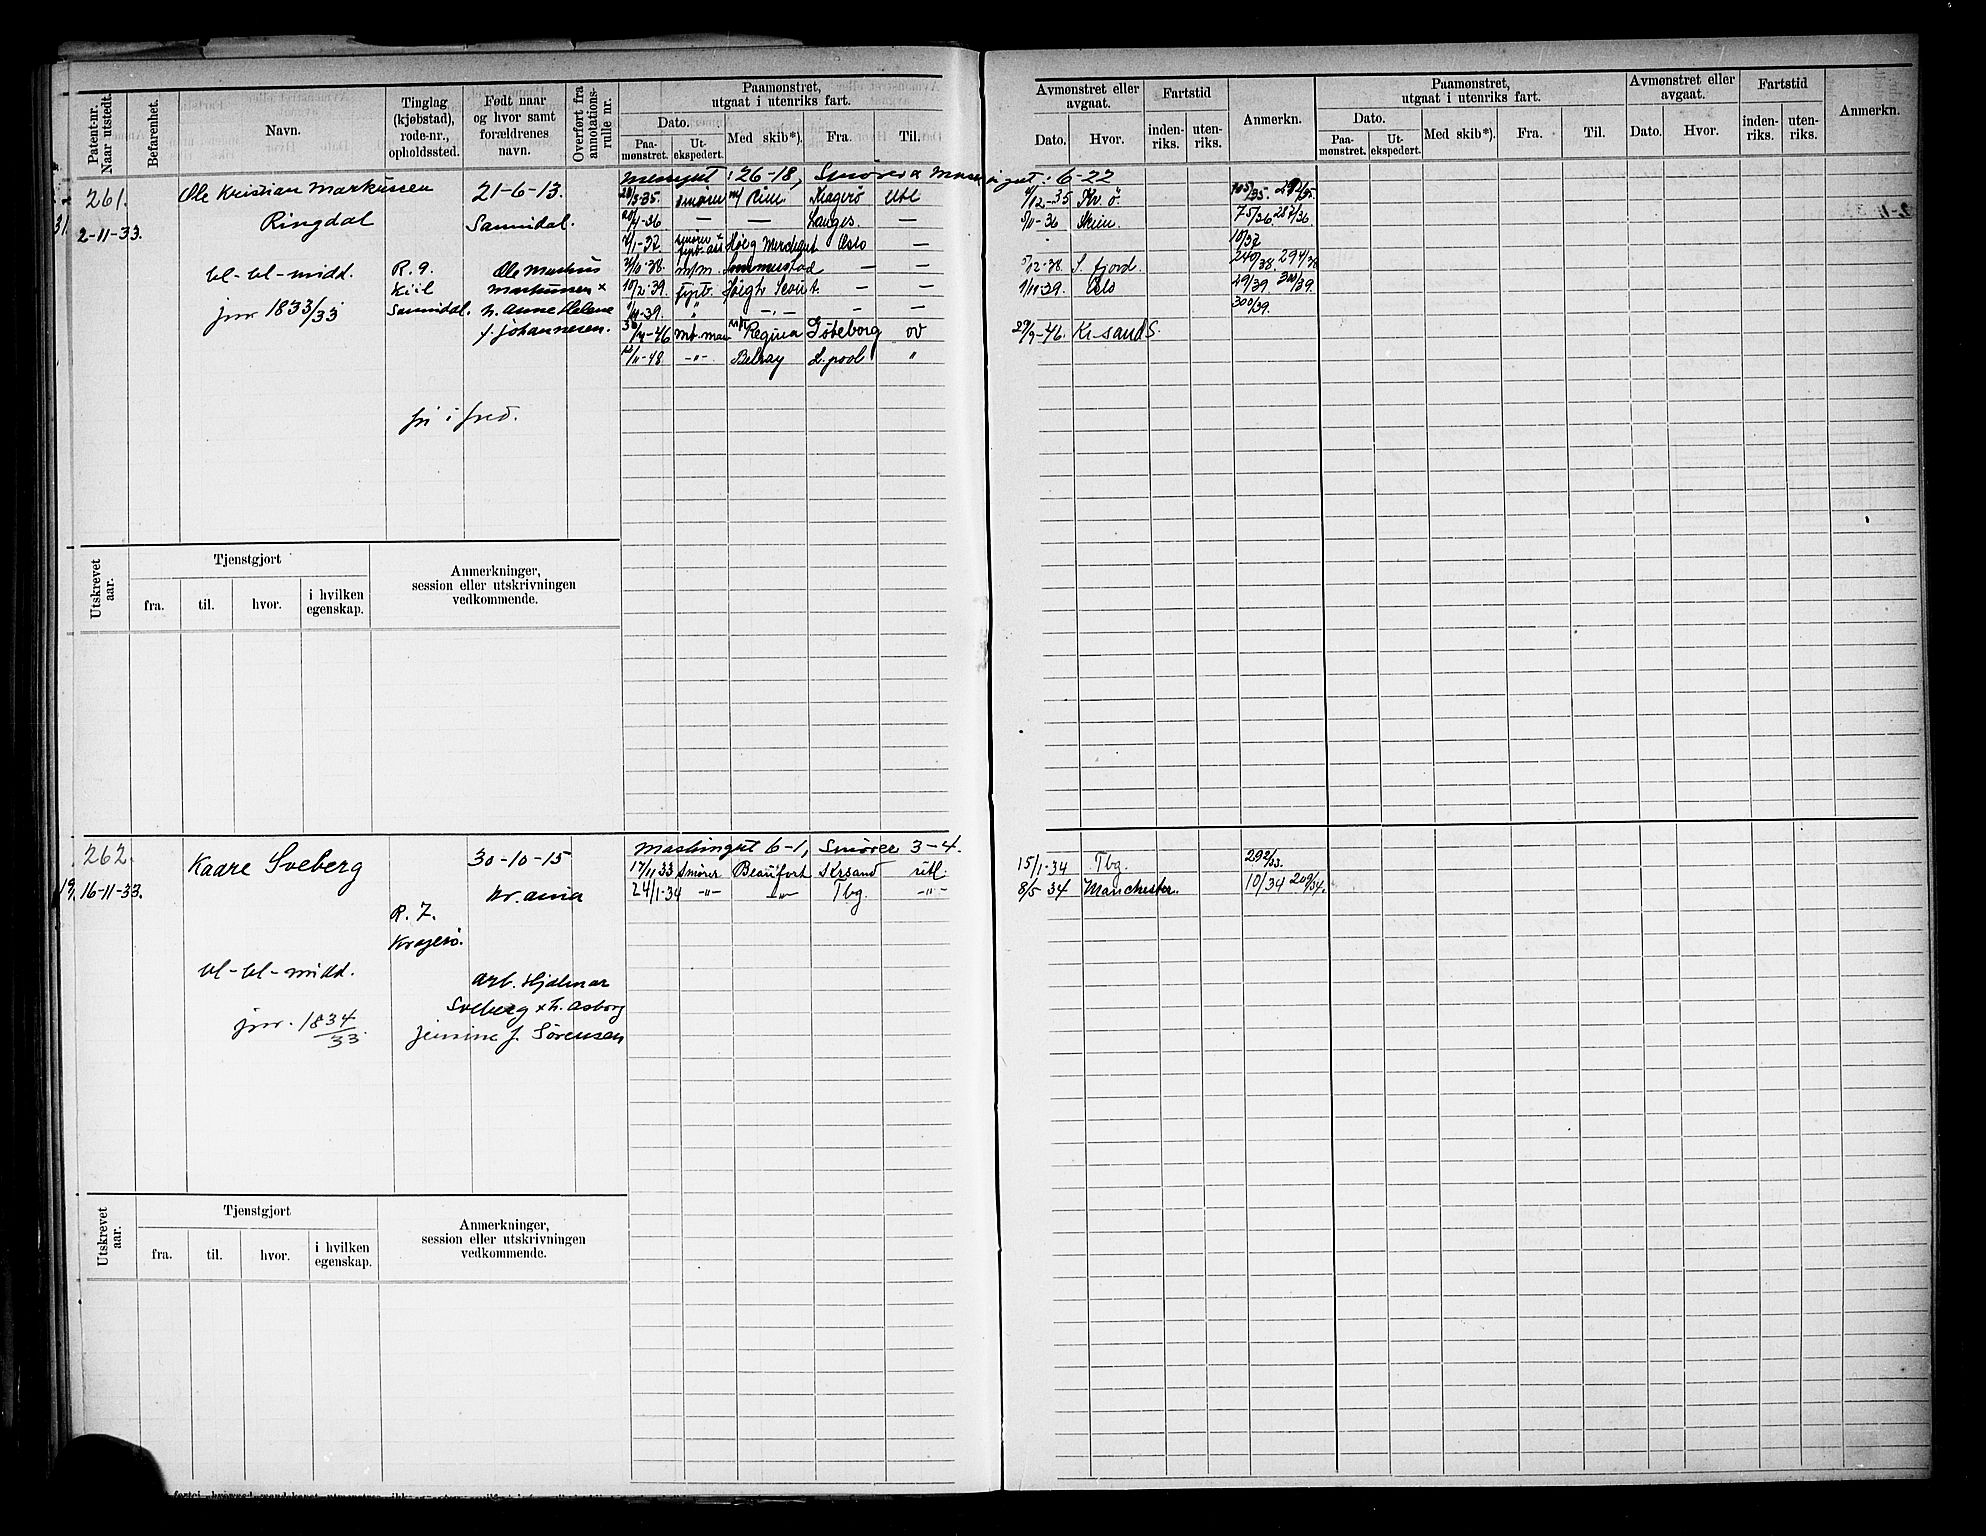 Patent-nr. Naar utstedt.
Befarenhet.
Navn.
Tinglag (kjøbstad), rode-nr., opholdssted.
Født naar og hvor samt forældrenes navn.
Overført fra annotations-rulle nr.
Paamønstret, utgaat i utenriks fart.
Dato.
Paa-mønstret.
Ut-ekspedert.
Med skib*).
Fra.
Til.
Avmønstret eller avgaat.
Dato.
Hvor.
Fartstid
inden-riks.
uten-riks.
Anmerkn.
Paamønstret, utgaat i utenriks fart.
Dato.
Paa-mønstret.
Ut-ekspedert.
Med skib*).
Fra.
Til.
Avmønstret eller avgaat.
Dato.
Hvor.
Fartstid
inden-riks.
uten-riks.
Anmerkn.
261.
2-11-33.
Ole Kristian Markussen
Ringdal
bl-bl-midd.
jnr 1833/33
R. 9.
Kiil
Sannidal.
21-6-13.
Sannidal.
Ole Markus
Markussen x
h. Anne Helene
f. Johannesen.
fri i fred.
26-18, Smører & 6-22
3-35 smører Rein Kragerø Utl 12-35 Kr. ö 105/35.
-36 — — Langes. — 11-36 Skien. 75/36
1-37 Høeg Merchant Oslo — 10/37
38. m/m. Sommerstad — — 12-38. S. fjord. 240/38 294/38
10/2-39. fyrb. Høegh Scout. — — 11-39. Oslo 49/39.
39. " — — — 300/39.
-46 mt. man Regina Göteborg ov 27/9-46. Kr-sand S.
12/11-48 -"- Belray L. pool "
Utskrevet aar.
Tjenstgjort
fra.
til.
hvor.
i hvilken egenskap.
Anmerkninger, session eller utskrivningen vedkommende.
262.
16-11-33.
Kaare Sveberg
bl-bl-midd.
jnr. 1834/33.
R. 7.
Kragerø.
30-10-15
Kr. ania
arb. Hjalmar
Sveberg x h. Asborg
Jensine f. Sørensen
Maskingut 6-1, Smører 3-4.
17/11 33 Smører Beaufort Krsand utl. 15/1-34 Tbg. 292/33.
24/1-34 -"- -"- Tbg. -"- 8/5 34 Manchester. 10/34 209/34.
Utskrevet aar.
Tjenstgjort
fra.
til.
hvor.
i hvilken egenskap.
Anmerkninger, session eller utskrivningen vedkommende.